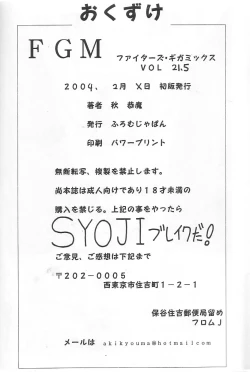 おくずけ
FGM
ファイターズ・ギガミックス
VOL 21.5
2004、 2月 X日 初版発行
著者 秋 恭魔
発行 ふろむじゃぱん
印刷 パワープリント
無断転写、複製を禁止します。
尚本誌は成人向けであり18才未満の
購入を禁じる。上記の事をやったら
SYOJIブレイクだ!
ご意見、ご感想は下記まで
〒202-0005
西東京市住吉町1-2-1
保谷住吉郵便局留め
フロムJ
メールは akikyouma@hotmail.com